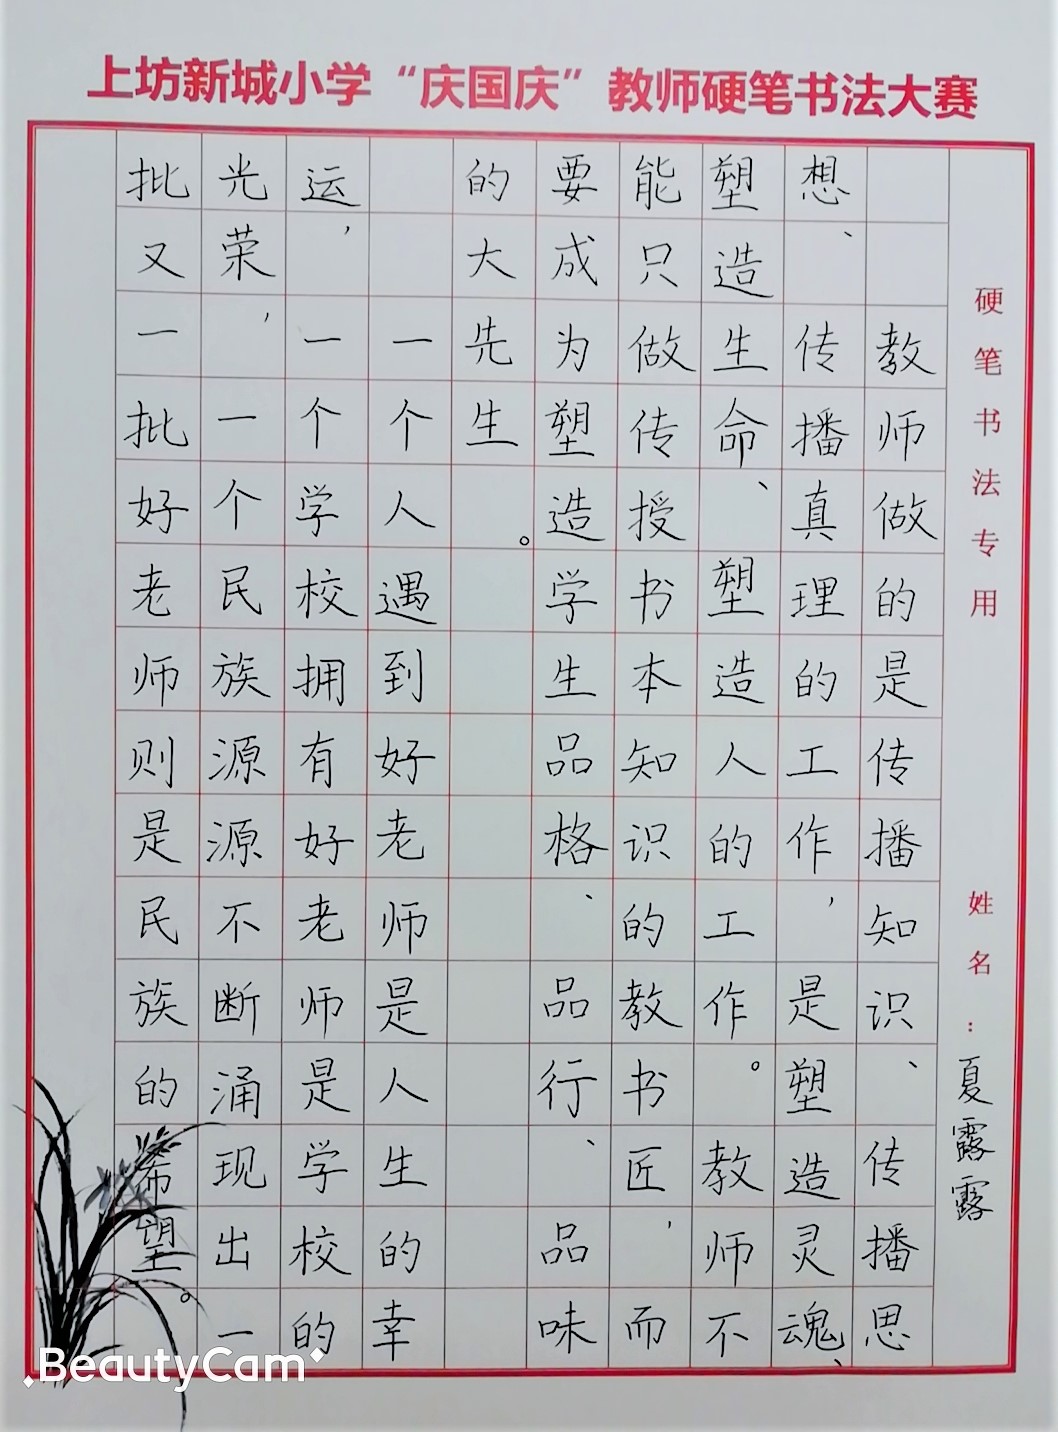 上坊新城小学“庆国庆”教师硬笔书法大赛
硬笔书法专用
姓名：夏露露
教师做的是传播知识、传播思
想、传播真理的工作，是塑造灵魂、
塑造生命、塑造人的工作。教师不
能只做传授书本知识的教书匠，而
要成为塑造学生品格、品行、品味
的大先生。
一个人遇到好老师是人生的幸
运，一个学校拥有好老师是学校的
光荣，一个民族源源不断涌现出一
批又一批好老师则是民族的希望。
BeautyCam